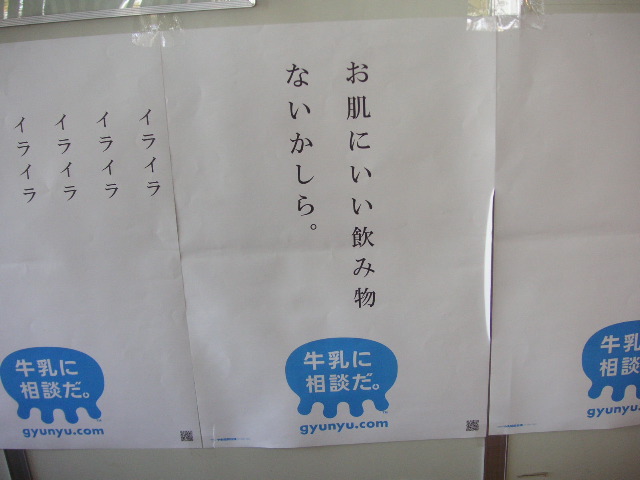 イライラ
イライラ
イライラ
イライラ
牛乳に
相談だ。
gyunyu.com
お肌にいい飲み物
ないかしら。
牛乳に
相談だ。
gyunyu.com
牛乳
相談
gyunyu.c